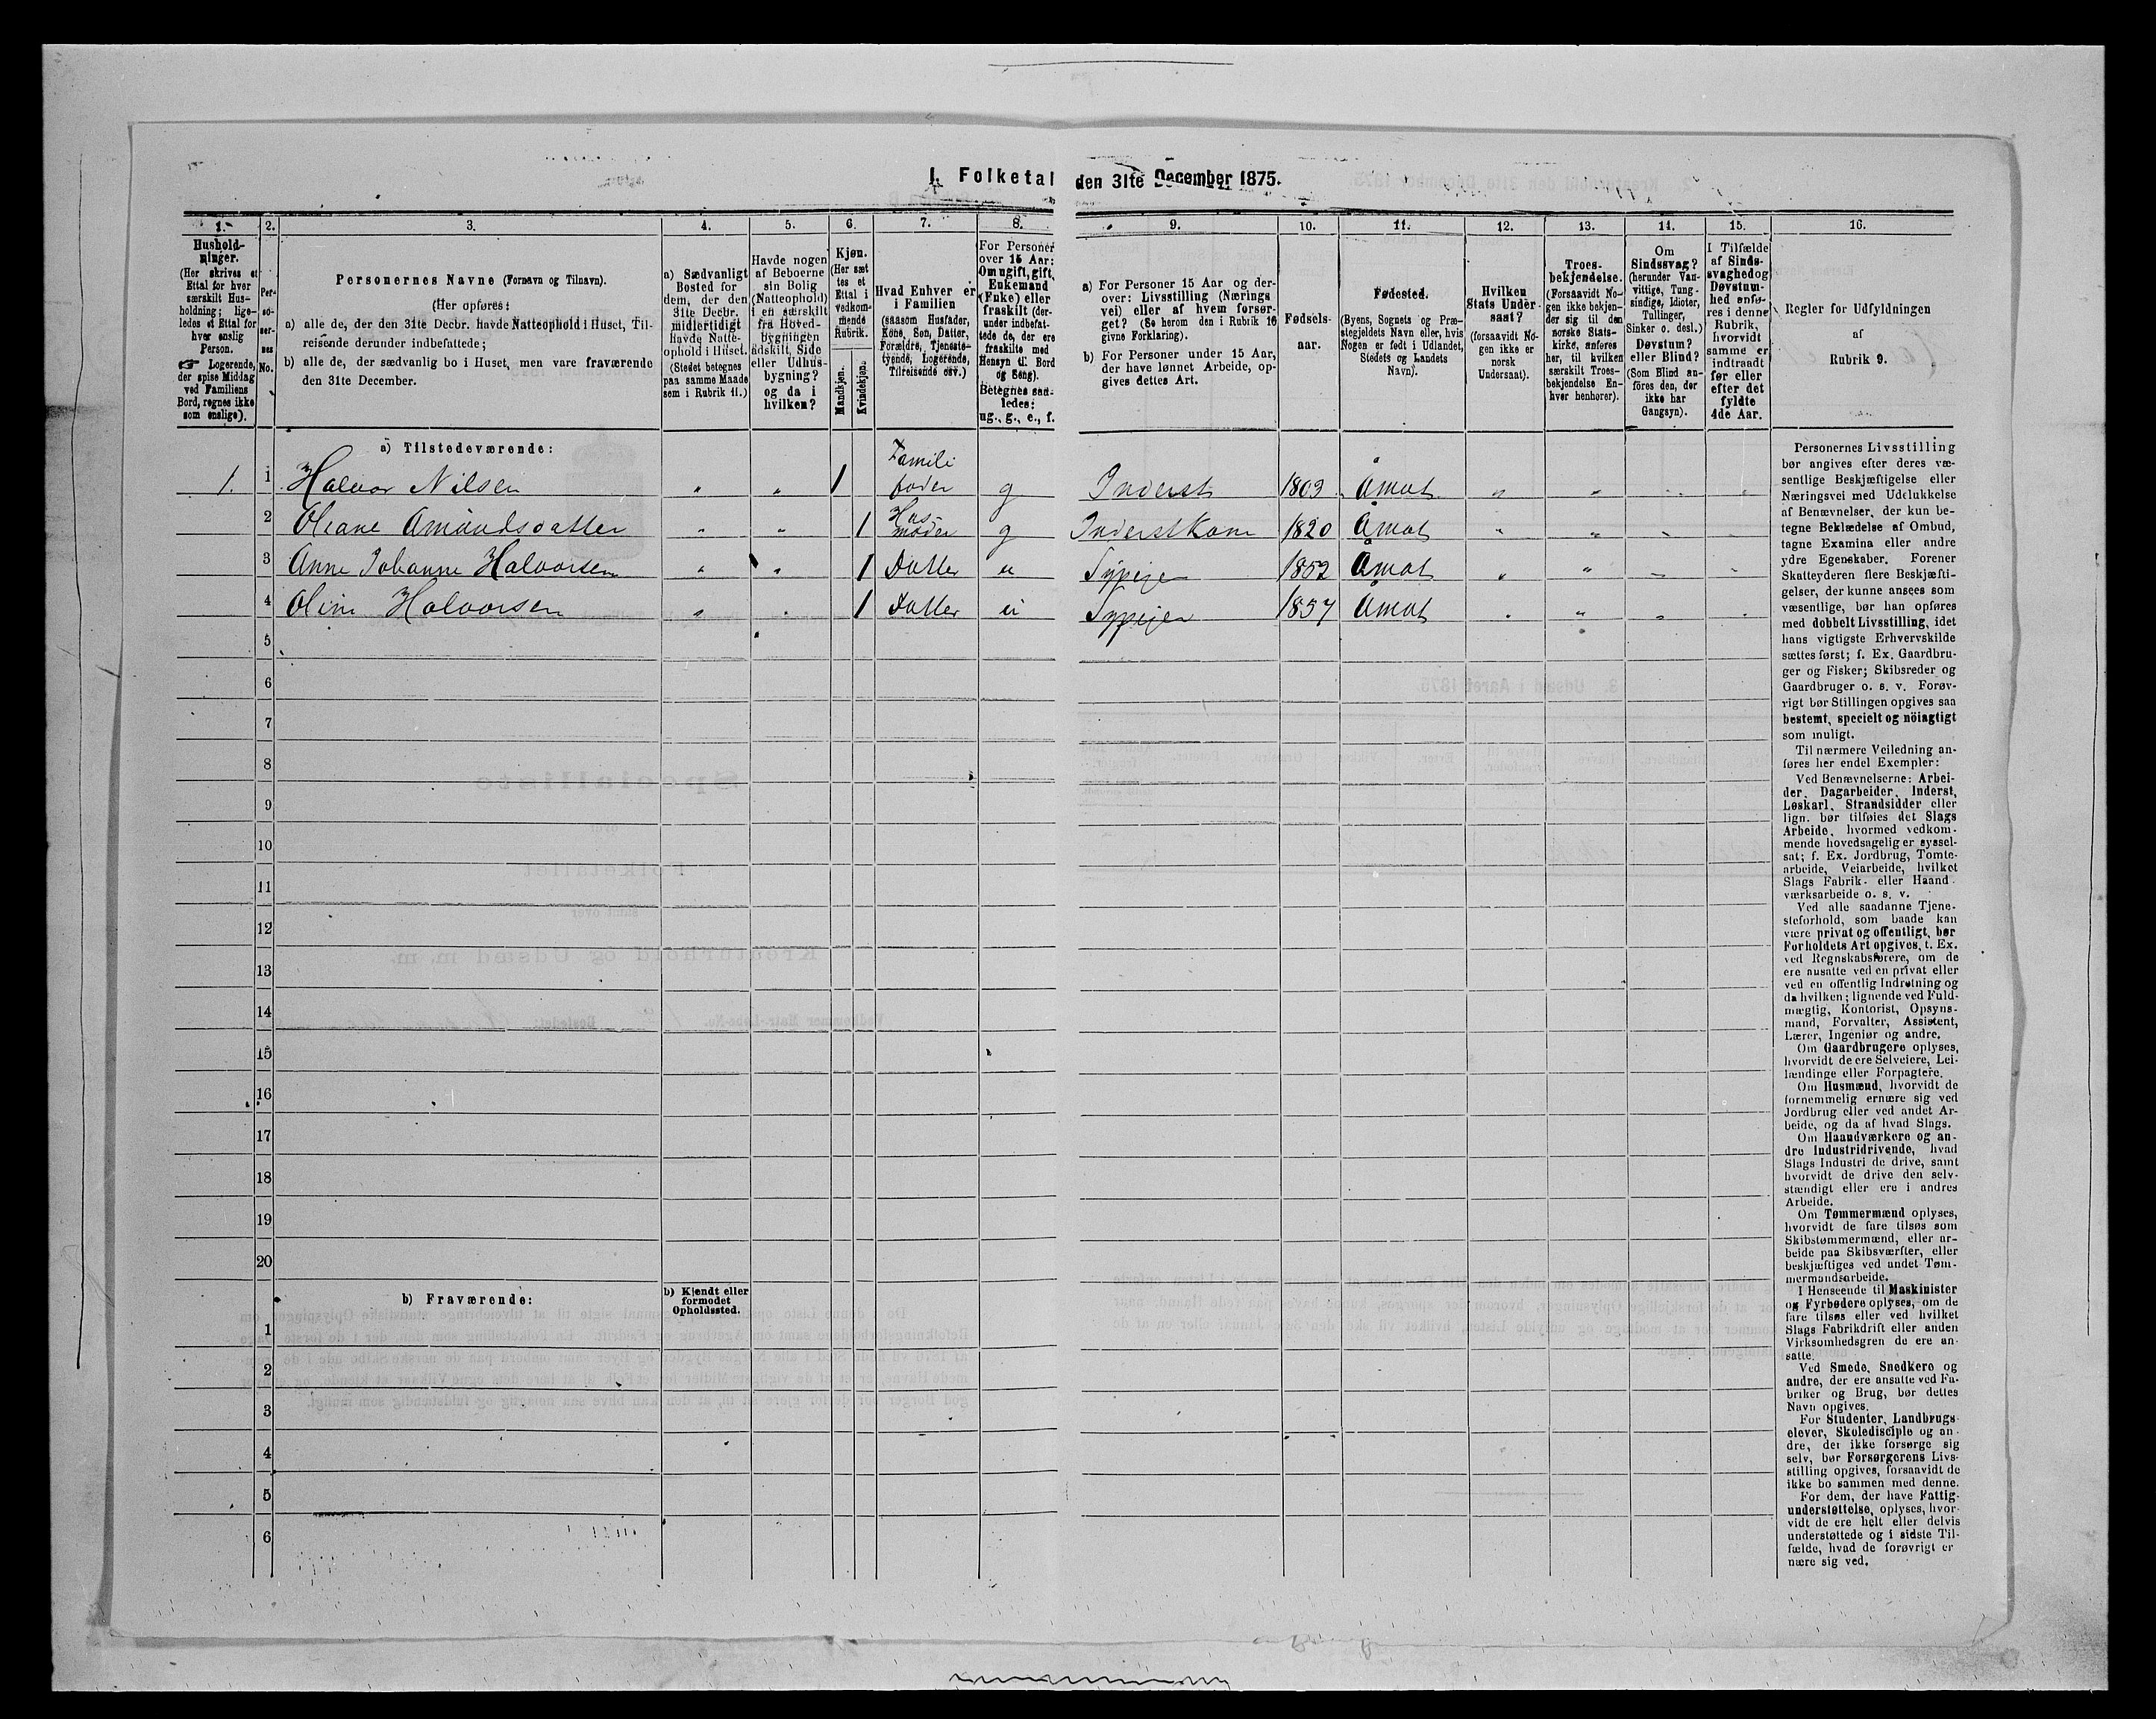 1. Folketal den 31te December 1875.
1.
Hushold-
ninger.
(Her skrives et
Ettal for hver
særskilt Hus-
holdning; lige-
ledes et Ettal for
hver enslig
Person.
☞ Logerende,
der spise Middag
ved Familiens
Bord, regnes ikke
som enslige).
2.
Per-
so-
ner-
nes
No.
3.
Personernes Navne (Fornavn og Tilnavn).
(Her opføres:
a) alle de, der den 31te Decbr. havde Natteophold i Huset, Til-
reisende derunder indbefattede;
b) alle de, der sædvanlig bo i Huset, men vare fraværende
den 31te December.
4.
a) Sædvanligt
Bosted for
dem, der den
31te Decbr.
midlertidigt
havde Natte-
ophold i Huset.
(Stedet betegnes
paa samme Maade
som i Rubrik 11.)
5.
Havde nogen
af Beboerne
sin Bolig
(Natteophold)
i en særskilt
fra Hoved-
bygningen
adskilt, Side
eller Udhus-
bygning?
og da i
hvilken?
6.
Kjøn.
(Her sæt
tes et
Ettal i
vedkom-
mende
Rubrik.
Mandkjøn.
Kvindekjøn.
7.
Hvad Enhver er
i Familien
(saasom Husfader,
Kone, Søn, Datter,
Forældre, Tjeneste-
tyende, Logerende,
Tilreisende osv.)
8.
For Personer
over 15 Aar:
Om ugift, gift,
Enkemand
(Enke) eller
fraskilt (der-
under indbefat-
tede de, der ere
fraskilte med
Hensyn til Bord
og Seng).
Betegnes saa-
ledes:
ug., g., e., f.
9.
a) For Personer 15 Aar og der-
over: Livsstilling (Nærings
vei) eller af hvem forsør-
get? (Se herom den i Rubrik 16
givne Forklaring).
b) For Personer under 15 Aar,
der have lønnet Arbeide, op-
gives dettes Art.
10.
Fødsels-
aar.
11.
Fødested.
(Byens, Sognets og Præ-
stegjeldets Navn eller, hvis
Nogen er født i Udlandet,
Stedets og Landets
Navn).
12.
Hvilken
Stats Under-
saat?
(forsaavidt No-
gen ikke er
norsk
Undersaat).
13.
Troes-
bekjendelse.
(Forsaavidt No-
gen ikke bekjen-
der sig til den
norske Stats-
kirke, anføres
her, til hvilken
særskilt Troes-
bekjendelse En-
hver henhører).
14.
Om
Sindssvag?
(herunder Van-
vittige, Tung-
sindige, Idioter,
Tullinger,
Sinker o. desl.)
Døvstum?
eller Blind?
(Som Blind an-
føres den, der
ikke har
Gangsyn).
15.
I Tilfælde
af Sinds-
svaghed og
Døvstum-
hed anfø-
res i denne
Rubrik,
hvorvidt
samme er
indtraadt
før eller
efter det
fyldte
4de Aar.
16.
Regler for Udfyldningen
af
Rubrik 9.
a) Tilstedeværende:
1. 1 Halvor Nilsen " " 1 Familifader g Inderst 1803 Åmot " " " "
2 Oliane Amundsdatter " " 1 Husmoder g Inderst Kone 1820 Åmot " " " "
3 Anne Johanne Halvorsen " " 1 Datter u Sypige 1852 Åmot " " " "
4 Oline Halvorsen " " 1 Datter u Sypige 1857 Åmot " " " "
5
6
7
8
9
10
11
12
13
14
15
16
17
18
19
20
b) Fraværende:
b) Kjendt eller
formodet
Opholdssted.
1
2
3
4
5
6
Personernes Livsstilling
bør angives efter deres væ-
sentlige Beskjæftigelse eller
Næringsvei med Udelukkelse
af Benævnelser, der kun be-
tegne Beklædelse af Ombud,
tagne Examina eller andre
ydre Egenskaber. Forener
Skatteyderen flere Beskjæfti-
gelser, der kunne ansees som
væsentlige, bør han opføres
med dobbelt Livsstilling, idet
hans vigtigste Erhvervskilde
sættes først; f. Ex. Gaardbru-
ger og Fisker; Skibsreder og
Gaardbruger o. s. v. Forøv-
rigt bør Stillingen opgives saa
bestemt, specielt og nöiagtigt
som muligt.
Til nærmere Veiledning an-
føres her endel Exempler:
Ved Benævnelserne: Arbei-
der, Dagarbeider, Inderst,
Løskarl, Strandsidder eller
lign. bør tilføies det Slags
Arbeide, hvormed vedkom-
mende hovedsagelig er syssel-
sat; f. Ex. Jordbrug, Tomte-
arbeide, Veiarbeide, hvilket
Slags Fabrik- eller Haand-
værksarbeide o. s. v.
Ved alle saadanne Tjene-
steforhold, som baade kan
være privat og offentligt, bør
Forholdets Art opgives, t. Ex.
ved Regnskabsførere, om de
ere ansatte ved en privat eller
ved en offentlig Indretning og
da hvilken; lignende ved Fuld-
mægtig, Kontorist, Opsyns-
mand, Forvalter, Assistent,
Lærer, Ingeniør og andre.
Om Gaardbrugere oplyses,
hvorvidt de ere Selveiere, Lei-
lændinge eller Forpagtere.
Om Husmænd, hvorvidt de
fornemmelig ernære sig ved
Jordbrug eller ved andet Ar-
beide, og da af hvad Slags.
Om Haandværkere og an-
dre Industridrivende, hvad
Slags Industri de drive, samt
hvorvidt de drive den selv-
stændigt eller ere i andres
Arbeide.
Om Tømmermænd oplyses,
hvorvidt de fare tilsøs som
Skibstømmermænd, eller ar-
beide paa Skibsværfter, eller
beskjæftiges ved andet Tøm-
mermandsarbeide.
I Henseende til Maskinister
og Fyrbødere oplyses, om de
fare tilsøs eller ved hvilket
Slags Fabrikdrift eller anden
Virksomhedsgren de ere an-
satte.
Ved Smede, Snedkere og
andre, der ere ansatte ved Fa-
briker og Brug, bør dettes
Navn opgives.
For Studenter, Landbrugs-
elever, Skoledisciple og an-
dre, der ikke forsørge sig
selv, bør Forsørgerens Livs-
stilling opgives, forsaavidt de
ikke bo sammen med denne.
For dem, der have Fattig-
understøttelse, oplyses, hvor-
vidt de ere helt eller delvis
understøttede og i sidste Til-
fælde, hvad de forøvrigt er
nære sig ved.